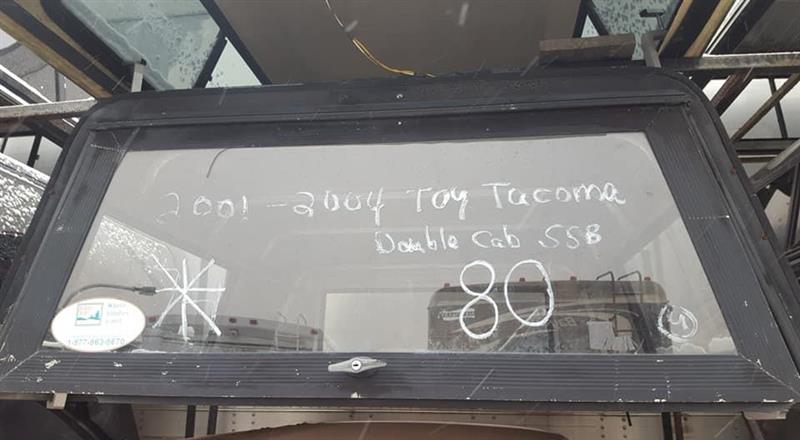 2001-2004 Toy Tacoma
Double Cab SSB
80
4
1-877-863-6670